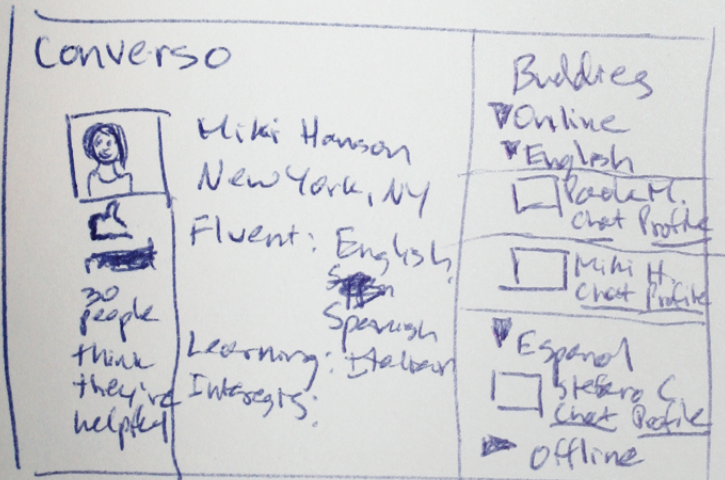 Converso
Miki Hanson
New York, NY
Fluent: English
Spanish
Learning: Italian
Interests:
30
people
think
they're
helpful
Buddies
Online
English
Paola M.
Chat Profile
Miki H.
Chat Profile
Espanol
Stefano C.
Chat Profile
Offline